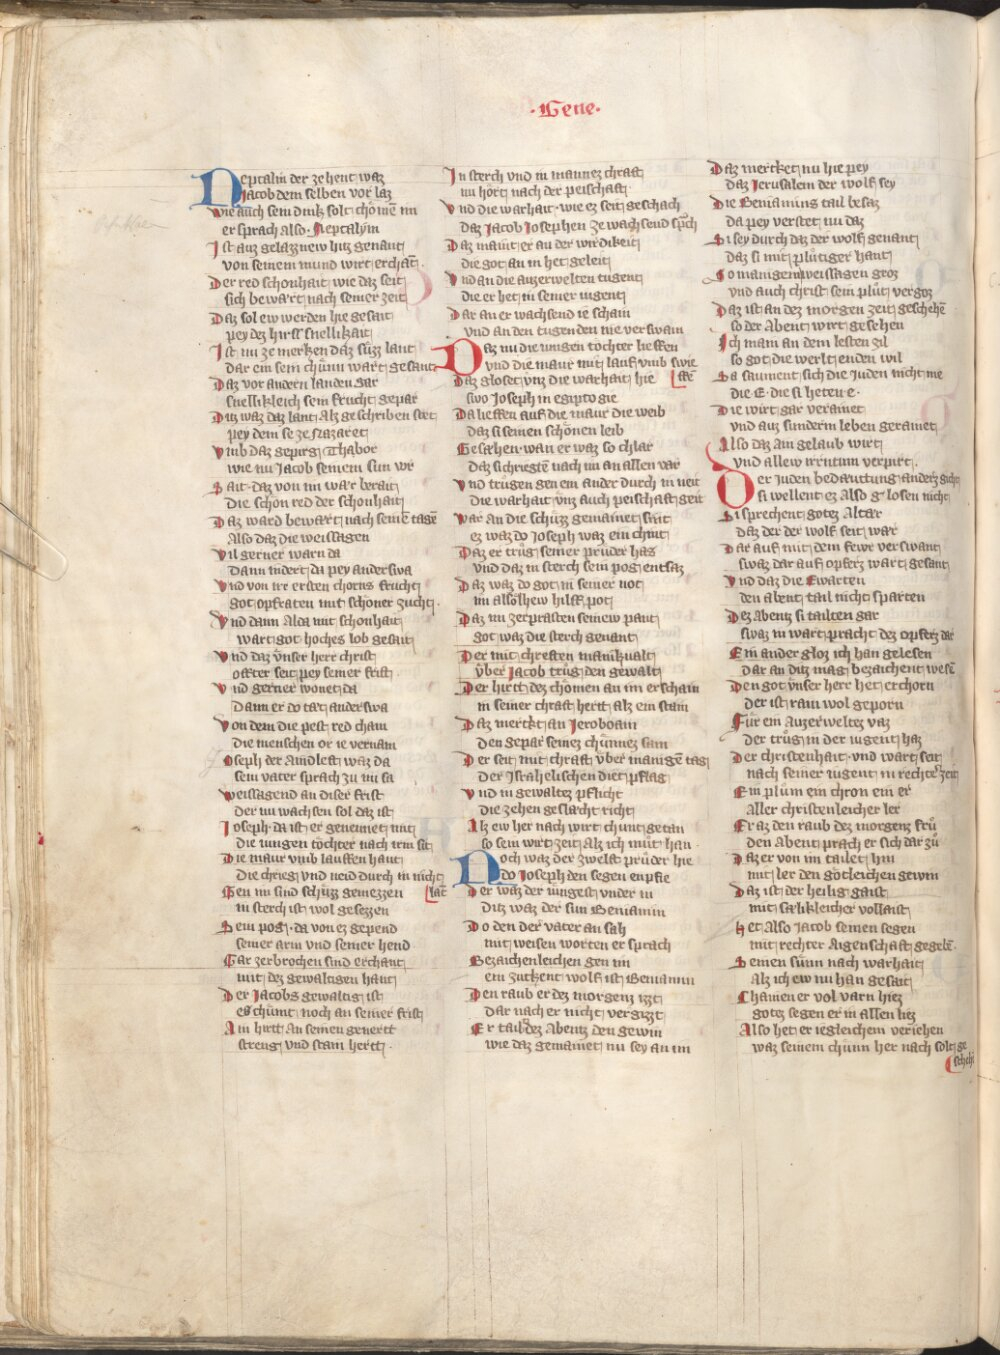 · Gene ·
Neptalin der zehent waz
Jacob dem selben vor laz
Wie auch seim dink solt chomē nu
er sprach also · Neptalym
Ist auz gelazznew hitz genant
von seinem mund wirt erchāt ·
Der red schonhait wie daz seit
sich bewart nach seiner zeit
Daz sol ew werden hie gesait
pey dez hirss snellikait
Ist nu ze merken daz süzz laut
dar ein sem chünn wart gesant
Daz vor andern landen gar
snellikleich sein frucht gepar
Ditz waz daz lant alz geschriben stet
pey dem se ze Nazaret
Vmb daz gepirg Thabor
wie nu Jacob seinem sun vor
Sait · daz von im war berait
die schön red der schonhait
Daz ward bewart nach seinē tagē
Also daz die weissagen
Vil gerner warn da
dann indert da pey anderswa
Vnd von irr ersten chorns frucht
got opfraten mit schöner zucht ·
Vnd dann Alda mit schonhait
wart got hoches lob gesait
Vnd daz vnser herr christ
offter seit pey seiner frist
Vnd gerner wonet da
dann er do tæt anderswa
Von dem die pest red cham
die menschen or ie vernam
Joseph der Aindleft waz da
sein vater sprach zu im sa
Weissagend an diser frist
der nu wachsen sol daz ist
Joseph · da ist er genennet mit
die iungen töchter nach irm sit
Die maur vmb lauffen hant
die chrieg vnd neid durch in nicht
lāt
Gen im sind schüzz gemezzen
in sterch ist wol gesezzen
Sein pog · da von ez gepend
seiner arm vnd seiner hend
Gar zerbrochen sind erchant
mit dez gewaltigen hant
Der Jacobs gewaltig ist
es chümt noch an seiner frist
Ain hirtt an seinen genertt
streng vnd stam hertt ·
In sterch vnd in mannez chraft
nu hört nach der peischaft ·
Vnd die warhait · wie ez seit geschach
daz Jacob Josephen ze wachsend sp̄ch
Daz maint er an der wirdikeit
die got an in het geleit
Vnd an die auzerwelten tugent
die er het in seiner iugent
Dar an er wachsend ie schain
vnd an den tugenden nie verswain
Daz nu die iungen töchter lieffen
vnd die maur mit lauf vmb swie
ffē
Daz gloset vnz die warhait hie
swo Joseph in egipto gie
Da lieffen auf die maur die weib
daz si seinen schönen leib
Gesahen · wan er waz so chlar
daz si chriegtē nach im an allen var
Vnd trügen gen ein ander durch in neit
die warhait vnz auch peischaft geit
War an die schüzz gemainet sint
ez waz do Joseph waz ein chint
Daz er trüg seiner prüder has
vnd daz in sterch sein pog entsaz
Daz waz do got in seiner not
im alsölhew hilff pot
Daz im zerprasten seinew pant
got waz die sterch genant
Der mit chreften manikualt
über Jacob trüg den gewalt
Der hirtt dez chömen an im erschain
in seiner chraft hertt alz ein stain
Daz merckt an Jeroboam
den gepar seinez chünnez sam
Der seit mit chraft vber manigē tag
der Jsrahelischen diet pflag
Vnd in gewaltez pflicht
die zehen geslächt richt
Alz ew her nach wirt chunt getan
so sein wirt zeit Alz ich müt han ·
Noch waz der zwelft prüder hie
do Joseph den segen enpfie
Der waz der iüngest vnder in
ditz waz der sun Beniamin
Do den der vater an sah
mit weisen worten er sprach
Bezaichenleichen gen im
ein zukent wolf ist Beniamin
Den raub er dez morgenz izzt
dar nach er nicht vergizzt
Er tail dez Abentz den gewin
wie daz gemainet nu sey an im
Daz mercket nu hie pey
daz Jerusalem der wolf sey
Die Beniamins tail besaz
da pey verstet nu daz
Si sey durch daz der wolf genant
daz si mit plütiger hant
So manigem weissagen groz
vnd auch christ sein plüt vergoz
Daz ist an dez morgen zeit geschehē
so der Abent wirt gesehen
Ich main an dem lesten zil
so got die werlt enden wil
Sa saument sich die Juden nicht me
die E · die si heten e ·
Die wirt gar verainet
vnd auz sündern leben gerainet
Also daz ain gelaub wirt
vnd allew irrentum verpirt ·
Der Juden bedäuttung anderz gicht
si wellent ez Also glosen nicht
Si sprechent gotez Altar
daz der der wolf seit war
Dar auf mit dem fewr verswant
swaz dar auf opferz wart gesant
Vnd daz die Ewarten
den abent tail nicht sparten
Dez Abentz si tailten gar
swaz in wart pracht dez opferz dar
Ein ander gloz ich han gelesen
dar an ditz mag bezaichent wesē
Den got vnser herr het erchorn
der ist rain wol geporn
Für ein auzerweltez vaz
der trüg in der iugent haz
Der christenhait · vnd wart seit
nach seiner iugent in rechter zeit
Ein plüm ein chron ein er
aller christenleicher ler
Er az den raub dez morgenz frü
den Abent prach er sich dar zü
Daz er von im tailet hin
mit ler den gotleichen gewin
Daz ist der heilig gaist
mit sälikleicher vollaist
Het Also Jacob seinen segen
mit rechter aigenschaft gegebē ·
Seinen sünn nach warhait
Alz ich ew nu han gesait
Chainen er vol varn hiez
gotez segen er in allen liez
Also het er iegleichem veriehen
waz seinem chünn her nach solt ge
schehē